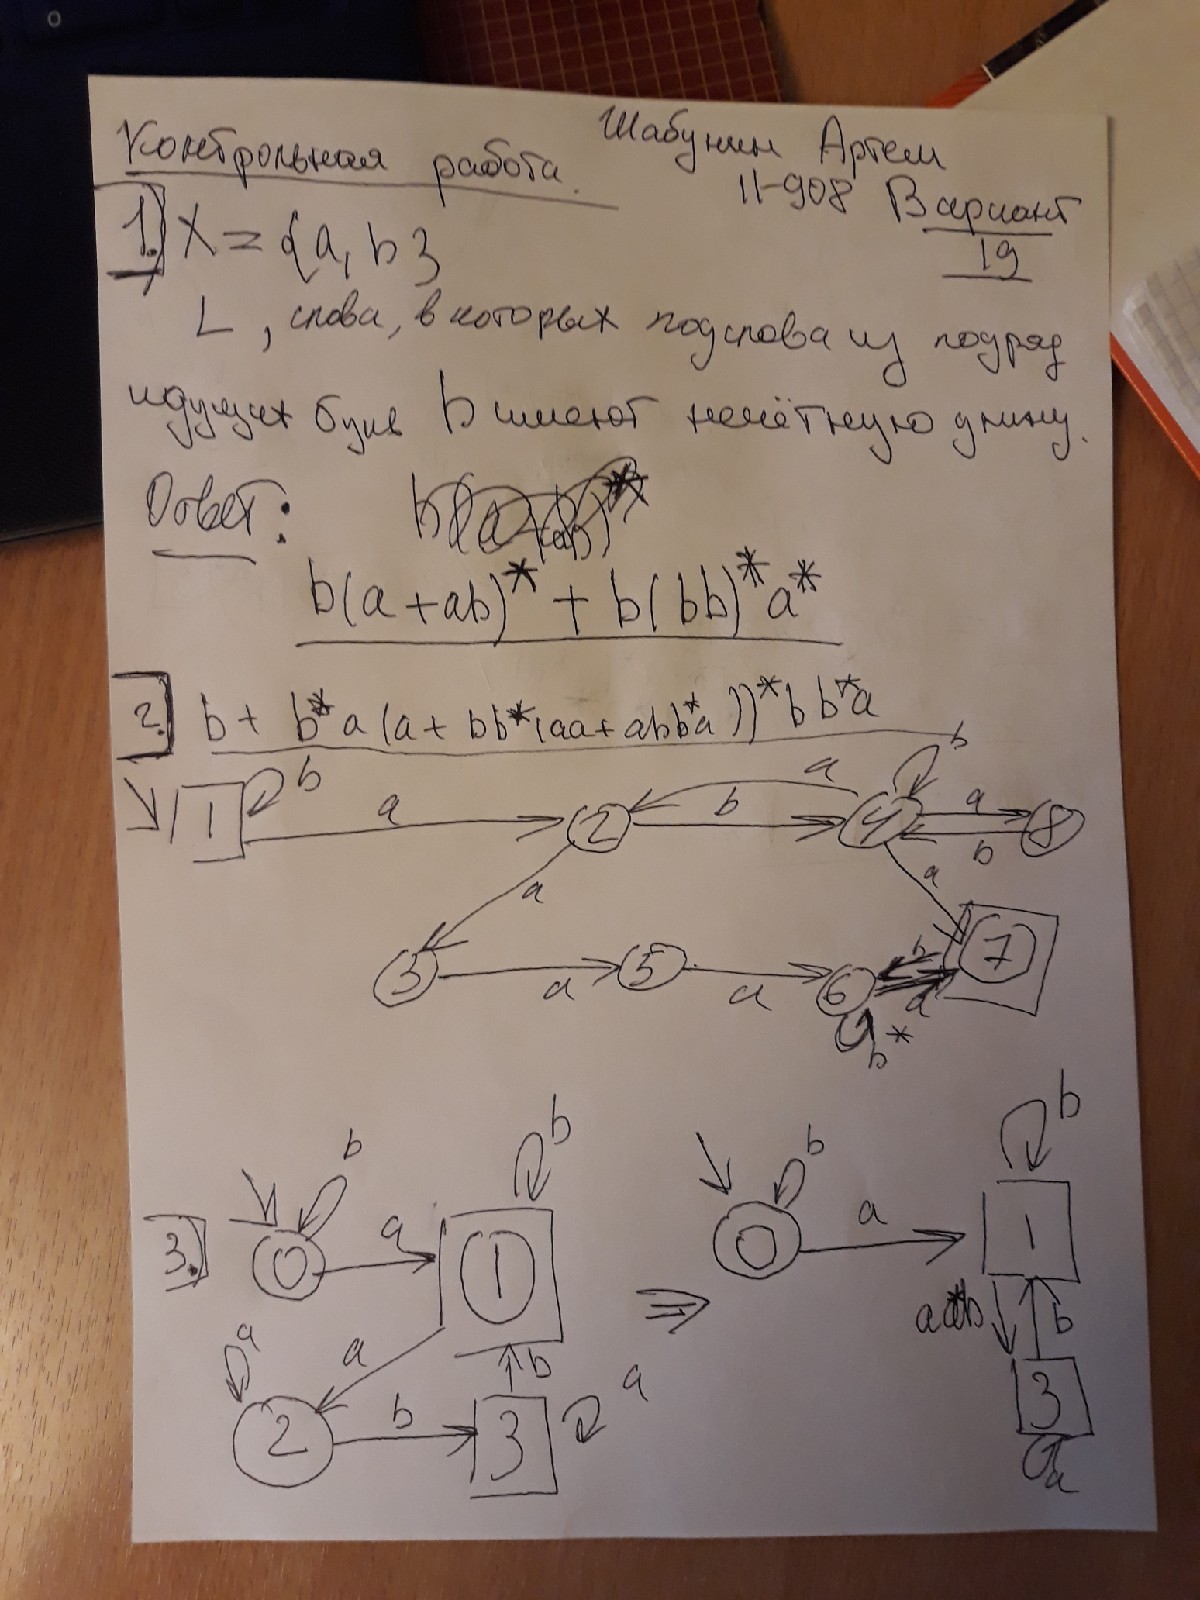 Контрольная работа.
Шабунин Артем
11-908 Вариант
19
1. X = {a, b}
L, слова, в которых подслова из подряд
идущих букв b имеют нечётную длину.
Ответ:
b(a+ab)* + b(bb)*a*
2. b + b*a(a + bb*(aa + abb*a))*bb*a
b
b
a
1
a
2
b
4
a
8
b
a
a
3
a
5
a
6
b
a
7
b*
b
b
b
b
3.
0
a
1
0
a
1
a
a
b
a
b
2
b
3
3
a